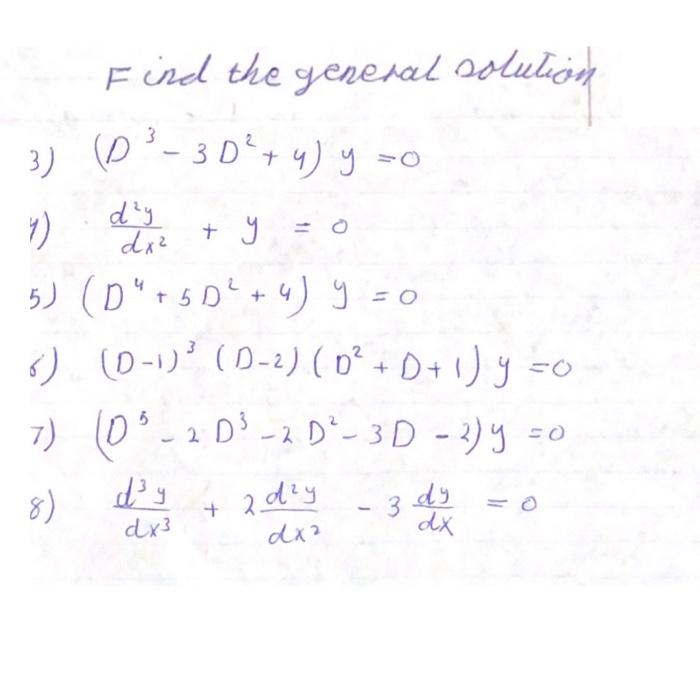 Find the general solution
3) (D³ - 3D² + 4) y = 0
4) d²y/dx² + y = 0
5) (D⁴ + 5D² + 4) y = 0
6) (D-1)³ (D-2) (D² + D + 1) y = 0
7) (D⁵ - 2D³ - 2D² - 3D - 2) y = 0
8) d³y/dx³ + 2 d²y/dx² - 3 dy/dx = 0